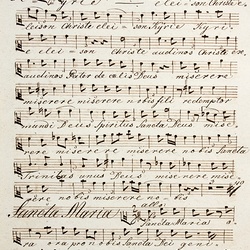 Kyrie elei = son Christe
eleison Christe elei = son Kyrie Kyri =
e elei = son Christe audi nos Christe ex
audi nos Pater de coelis Deus miserere
miserere miserere nobis fili redemptor
mundi Deus Spiritus Sancta Deus mise
rere miserere miserere nobis Sancta
Trinitas unus Deus miserere mise =
rere nobis miserere nobis
Sancta Maria allo
Sancta Maria o
ra ora pro nobis Sancta Dei geni =